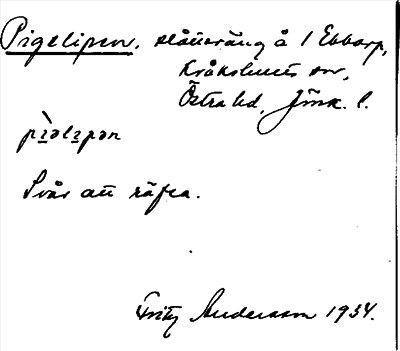 Pigelipen, slåtteräng å 1 Ebbarp,
Kråkshults sn,
Östra hd, Jönk. l.
Svår att räfsa.
Fritz Andersson 1934.